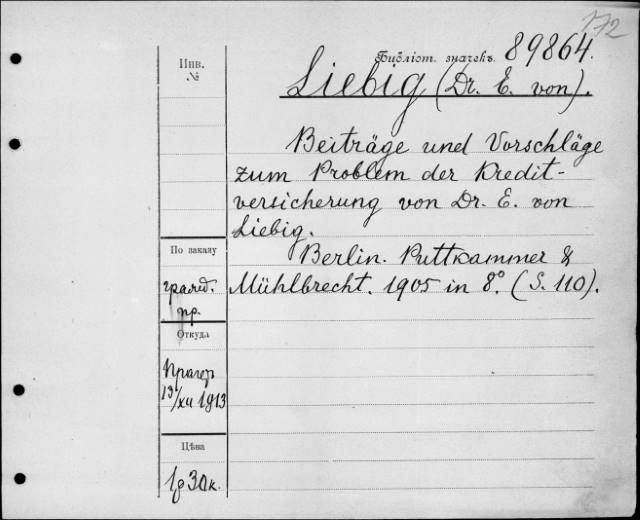 172
Библіот. значекъ 89864.
Инв.
№
Liebig (Dr. E. von).
Beiträge und Vorschläge
zum Problem der Kredit-
versicherung von Dr. E. von
Liebig.
Berlin. Puttkammer &
Mühlbrecht. 1905 in 8°. (S. 110).
По заказу
пр.
Откуда
13/XII 1913
Цѣна
1р 30к.